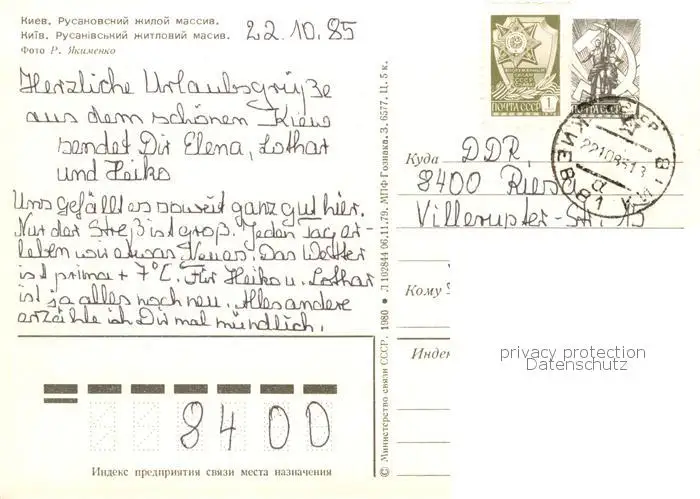 Киев. Русановский жилой массив.
Київ. Русанівський житловий масив.
Фото Р. Якименко
22.10.85
Herzliche Urlaubsgrüße
aus dem schönen Kiew
sendet Dir Elena, Lothar
und Heiko
Uns gefällt es soweit ganz gut hier.
Nur der Streß ist groß. Jeden Tag er-
leben wir etwas Neues. Das Wetter
ist prima + 7°C. Für Heiko u. Lothar
ist ja alles noch neu. Alles andere
erzähle ich Dir mal mündlich.
8400
Индекс предприятия связи места назначения
© Министерство связи СССР. 1980 ● Л 102844 06.11.79. МПФ Гознака. З. 6577. Ц. 5 к.
ПОЧТА СССР 1
ПОЧТА СССР
КИЕВ 81
Куда DDR,
8400 Riesa
Villerupter-Str. 15
Кому
Индек
privacy protection
Datenschutz